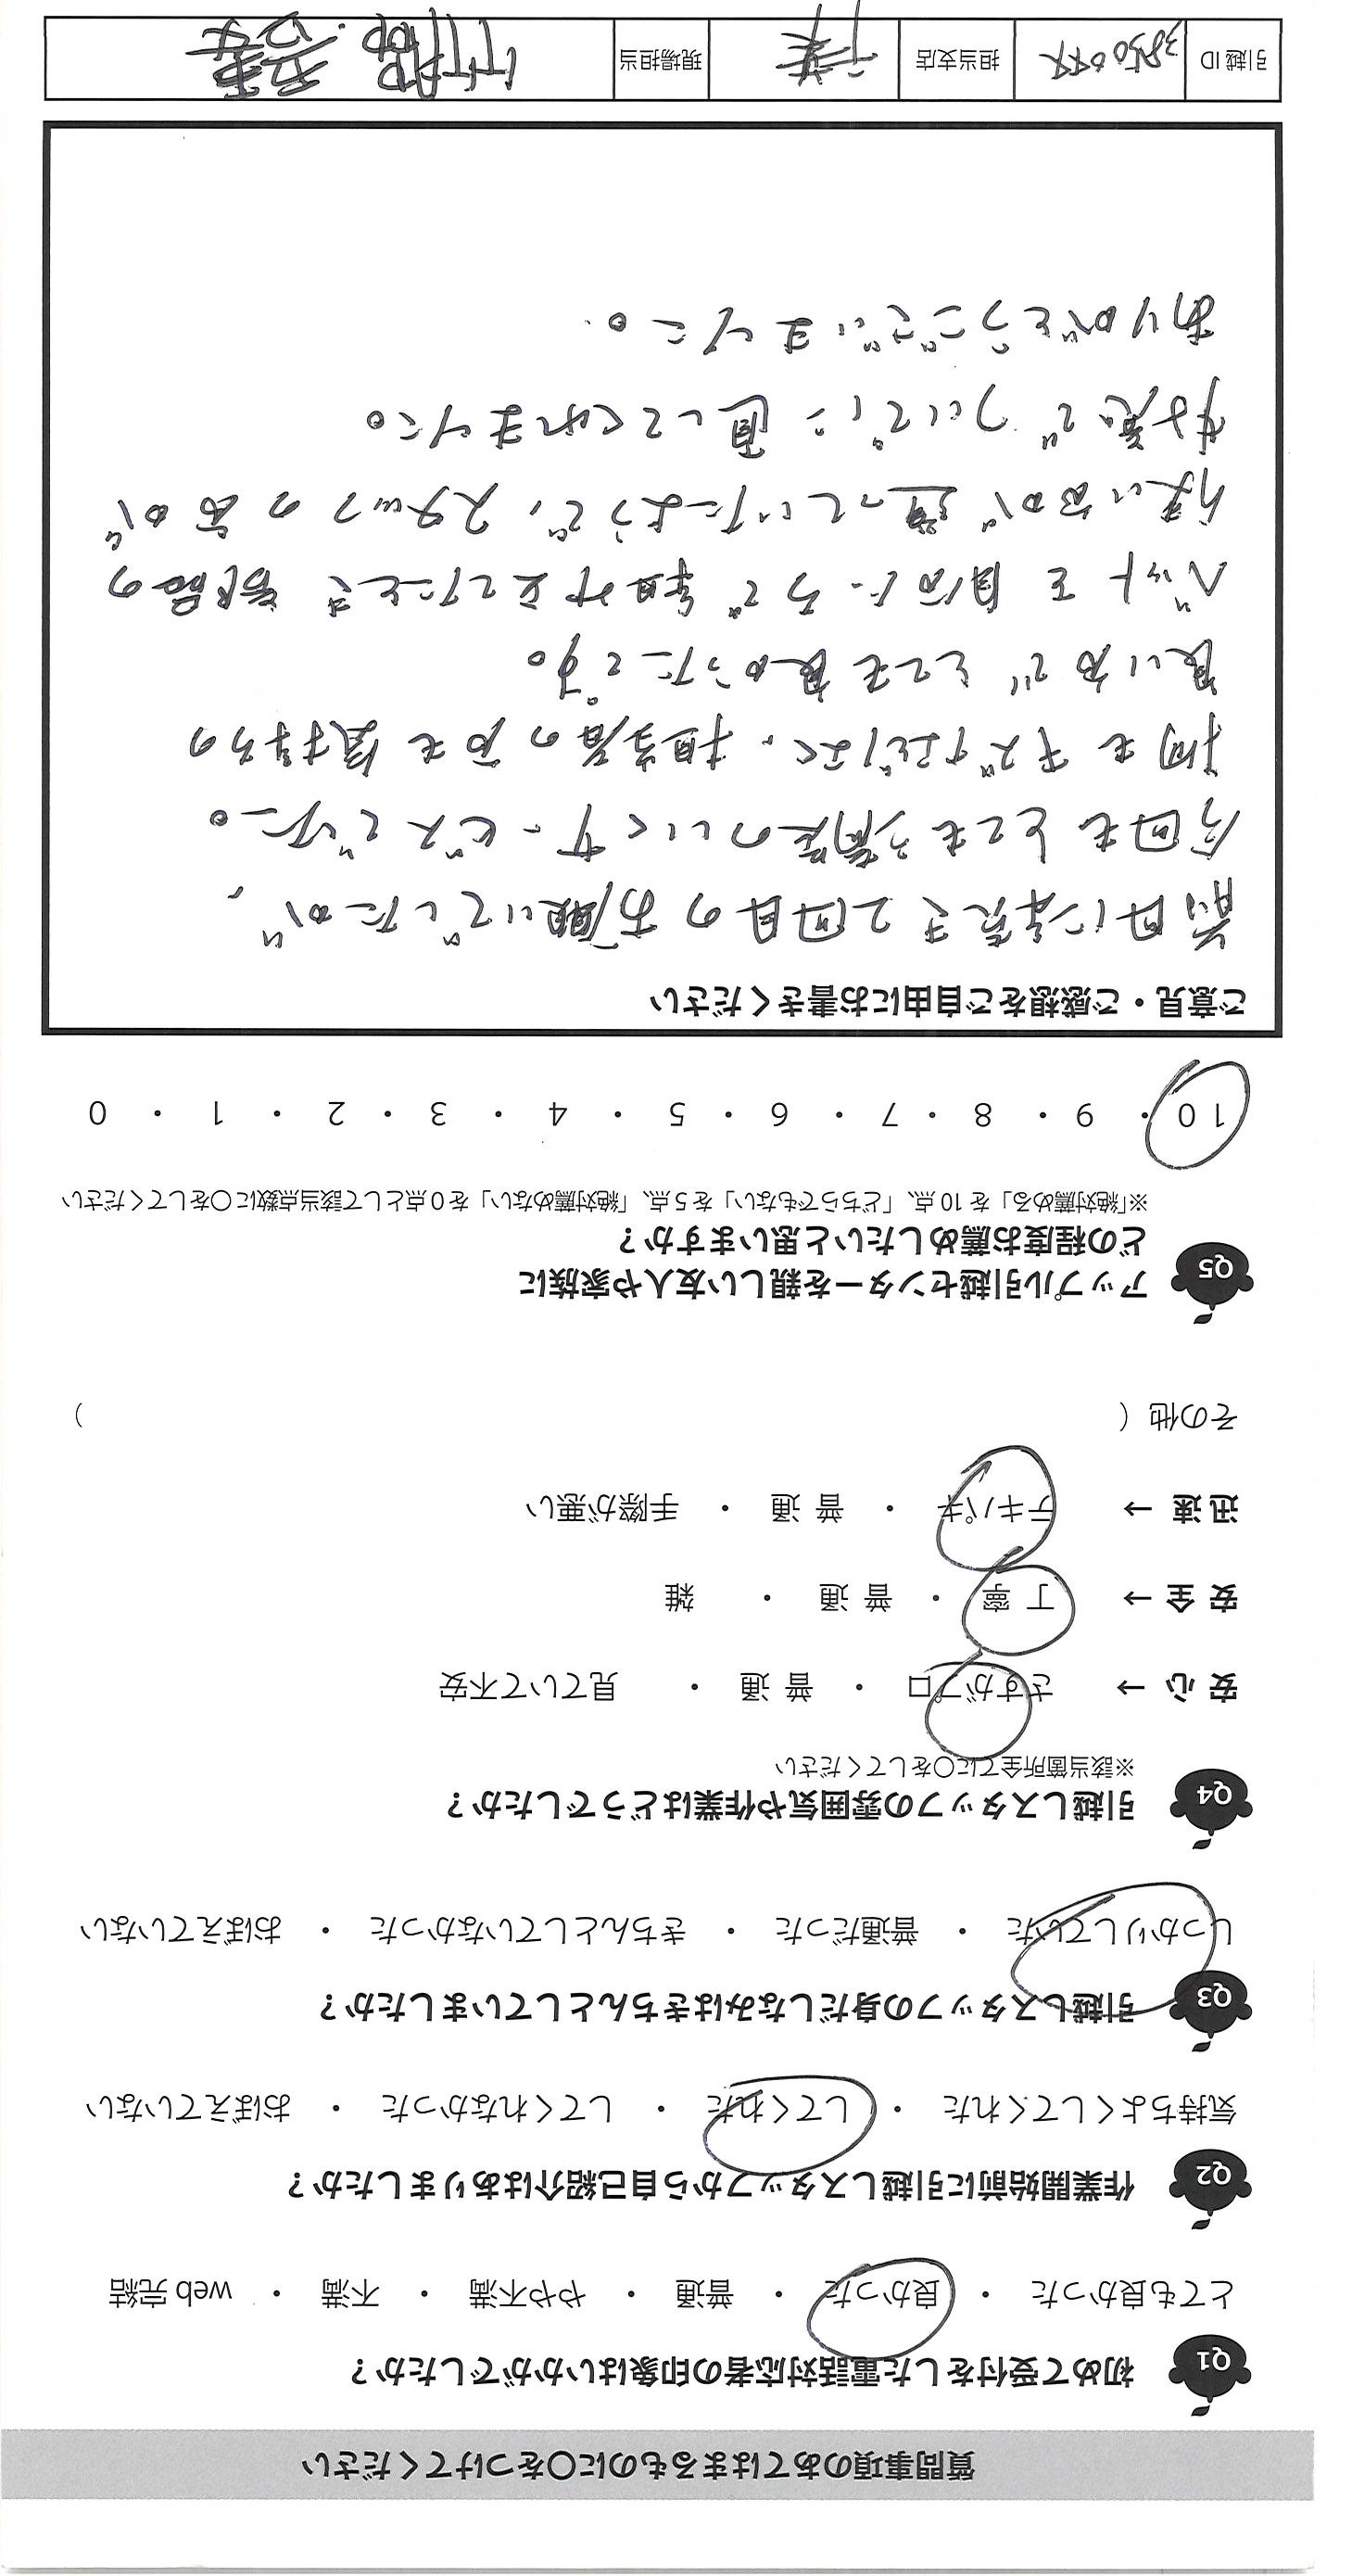 質問事項のあてはまるものに○をつけてください
Q1 初めて受付をした電話対応者の印象はいかがでしたか？
とても良かった ・ 良かった ・ 普通 ・ やや不満 ・ 不満 ・ web 完結
Q2 作業開始前に引越しスタッフから自己紹介はありましたか？
気持ちよくしてくれた ・ してくれた ・ してくれなかった ・ おぼえていない
Q3 引越しスタッフの身だしなみはきちんとしていましたか？
しっかりしていた ・ 普通だった ・ きちんとしていなかった ・ おぼえていない
Q4 引越しスタッフの雰囲気や作業はどうでしたか？
※該当箇所全てに○をしてください
安心 → さすがプロ ・ 普通 ・ 見ていて不安
安全 → 丁寧 ・ 普通 ・ 雑
迅速 → テキパキ ・ 普通 ・ 手際が悪い
その他（ ）
Q5 アップル引越センターを親しい友人や家族に
どの程度お薦めしたいと思いますか？
※「絶対薦める」を 10 点、「どちらでもない」を 5 点、「絶対薦めない」を 0 点として該当点数に○をしてください
10 ・ 9 ・ 8 ・ 7 ・ 6 ・ 5 ・ 4 ・ 3 ・ 2 ・ 1 ・ 0
ご意見・ご感想をご自由にお書きください
前回に続き2回目のお願いでしたが、
今回もとても満足のいくサービスでした。
何もキズなどなく、担当者の方も気持ちの
良い方でとても良かったです。
ベットを自分たちで組み立てたとき部品の
使い方が違っていたようで、スタッフの方が
好意でついでに直してくれました。
ありがとうございました。
引越 ID 担当支店 千葉 現場担当